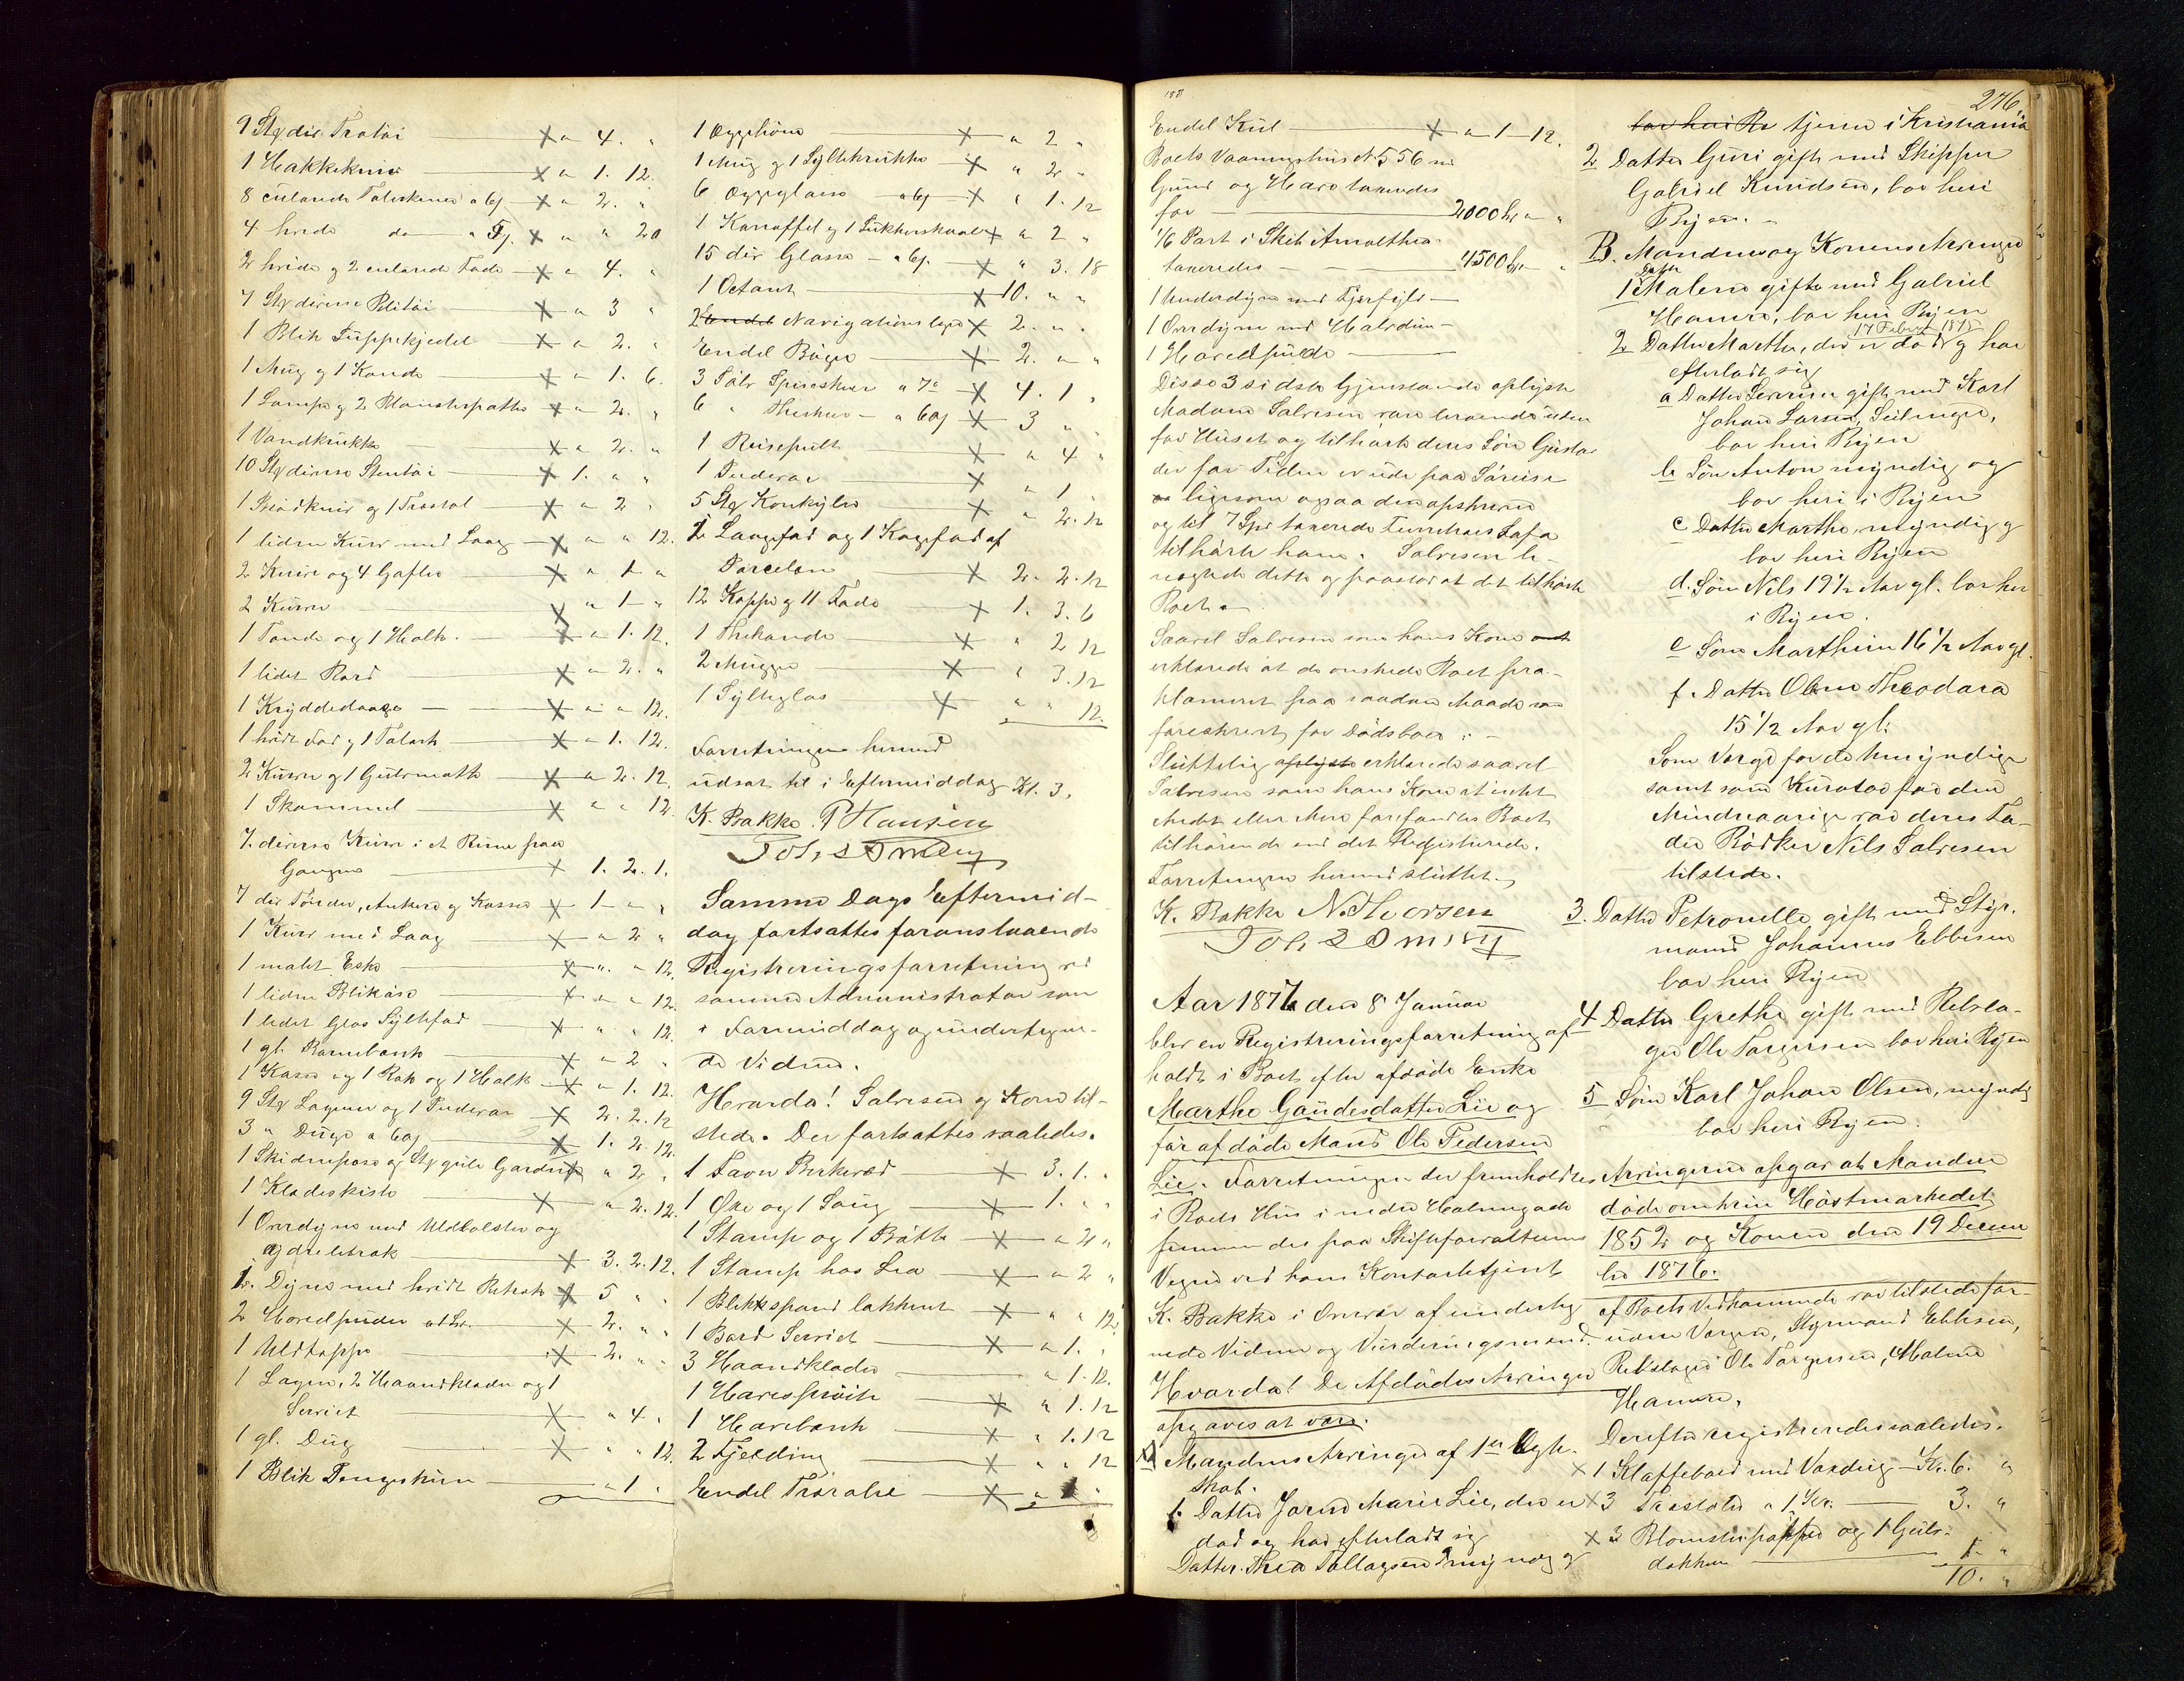 9 Stk div. Trætöi × " 4. "
1 Hakkekniv × " 1. 12.
8 culørede Talerkener a 6s × " 2. "
4 hvide do × " " 20
2 hvide og 2 culørede Fade × " 4. "
7 Stk diverse Blitöi × " 3 "
1 Blik Suppekjedel × " 2. "
1 Mug og 1 Kande × " 1. 6.
1 Lampe og 2 Blomsterpotter × " 2. "
1 Vandkrukke × " 2. "
10 Stk diverse Stentöi × 1. " "
1 Brödkniv og 1 Træstol × " 2 "
1 liden Kurv med Laag × " " 12.
2 Knive og 4 Gafler × " 1 "
2 Kurve × " 1 "
1 Tönde og 1 Holk × " 1. 12.
1 lidet Bord × " 2. "
1 Krydderdaase × " " 12.
1 hvidt Fad og 1 Talerk × " 1. 12.
2 Kurve og 1 Gulvmatte × " 2. 12.
1 Skammel × " " 12.
7. diverse Kurve i et Rum paa
Gangen × 1. 2. 1.
7 div Tönder, Ankere og Kasser × 1 " "
1 Kurv med Laag × " 2 "
1 malet Eske × " " 12.
1 liden Blikæske × " " 12
1 lidet Glas Syltefad × " " 12.
1 gl. Barnebænk × " 2 "
1 Kasse og 1 Rok og 1 Holk × " 1. 12.
9 Stk Lagener og 1 Pudevar × 2. 2. 12
3 " Duge a 60s × 1. 2. 12.
1 Skidenpose og Stk gule Gardiner × " 2 "
1 Klædeskiste × " 2. 12.
1 Overdyne med Uldbolster og
× 3. 2. 12.
1. Dyne med hvidt Betræk × 5 " "
2 Hovedpuder × 2. " "
1 Uldteppe × 2. " "
1 Lagen, 2 Haandklæder og 1
Serviet × " 4. "
1 gl. Dug × " " 12.
1 Blik Pengeskrin " 1 "
1 Æggekone × " 2 "
1 Mug og 1 Syltekrukke × " 2 "
6 Æggeglasse a 6s × " 1. 12
1 Karaffel og 1 Sukkerskaal × " 2 "
15 div Glasse a 6s. × " 3. 18
1 Octant × 10. " "
2 Navigations × 2. " "
Endel Böger × 2. " "
3 Sölv Spiseskeer × 4. 1 "
6 " Theskeer a 60s × 3 " "
1 Reisepult × " 4 "
1 Pudevar × " 1 "
5 Stk Konkylier × " 2. 12
1 Laagfad og 1 Kagefad af
Porcelæn × 2. 2. 12
12 Kopper og 11 Fade × 1. 3. 6
1 Thekande × " 2 12
2 Mugger × " 3. 12
1 Sylteglas × " " 12.
Forretningen hermed
udsat til i Eftermiddag Kl. 3.
K. Bakke. P Hansen
Samme Dags Eftermid-
dag fortsattes foranstaaende
Registreringsforretning ved
samme Administrator som
i Formiddag og undertegne-
de Vidner.
Hvorda! Salvesen og Kone til-
stede. Der fortsattes saaledes.
1 Favn Birkeved × 3. 1. "
1 Öxe og 1 Saug × 1. " "
1 Stamp og 1 Bötte × " 2 "
1 Stamp hos Lea × " 2 "
1 Blikkspand lakkeret × " " 12
1 Bord Serviet × " 1. "
3 Haandklæder " 1. 12.
1 Havespröite × " 1. 12
1 Havebænk × " 1. 12
2 Fjerding × " " 12
Endel Trævalie × "
188
276.
Endel Kul × " 1 " 12.
Boets Vaaningshus No 556 med
Grund og Have taxeredes
for 2000 Kr " "
1/6 Part i Skib Amalthea
taxeredes 4500 Kr "
1 Underdyne med Fjærfyld
1 Overdyne med Halvduun
1 Hovedpude
Disse 3 sidste Gjenstande oplyste
Madam Salvesen vare beroende uden
for Huset og tilhørte deres Sön Gustav
der for Tiden er ude paa Söreise
ligesom ogsaa den opskrevne
og til 7 Spd taxerede Sofa
tilhørte ham. Salvesen be-
nægtede dette og paastod at det tilhörte
Boet.
Saavel Salvesen som hans Kone
erklærede at de ønskede Boet pro-
klameret paa saadan Maade som
foreskrevet for Dödsboer.
Sluttelig erklærede saavel
Salvesen som hans Kone at intet
Medet eller Mere forefandtes Boet
tilhörende end det Registrerede.
Forretningen hermed sluttet.
K. Bakke N. Thorsen
Aar 1877 den 8 Januar
blev en Registreringsforretning af-
holdt i Boet efter afdöde Enke
Marthe Gaudesdatter Lie og
för afdöde Mand Ole Pedersen
Lie. Forretningen der fremholdtes
i Boets Hus i nedre
fremmedes paa Skifteforvalterens
Vegne ved hans Kontorbetjent
K. Bakke i Overvær af underteg
nede Vidner og Vurderingsmænd.
Hvorda! De Afdödes Arvinger
opgaves at være.
A Mandens Arvinger af 1ste Ægte-
skab.
1. Datter Marie Lie, der er
död og har efterladt sig
Datter Thea Tallagsen myndig og
bor heri By tjener i Kristiania
2 Datter Guri gift med Skipper
Gabriel Knudsen, bor heri
Byen.
B. Mandens og Konens Arvinger
1 Datter Malene gift med Gabriel
Hansen, bor heri Byen
17 Februar 1875
2 Datter Marthe, der er död og har
efterladt sig
a Datter Serine gift med Karl
Johan Larsen,
bor heri Byen
b Sön Anton myndig og
bor heri i Byen
c Datter Marthe, myndig og
bor heri Byen
d. Sön Nils 19 1/2 Aar gl. bor her
i Byen.
e Sön Marthin 16 1/2 Aar gl.
f. Datter Olene Theodora
15 1/2 Aar gl.
Som Værge for de Umyndige
samt som Kurator for den
Mindreaarige var deres Fa-
der Bödker Nils Salvesen
tilstede.
3. Datter Petronelle gift med Styr-
mand Johannes Ebbesen
bor heri Byen
4 Datter Grethe gift med Rebsla-
ger Ole Torgersen bor heri Byen
5 Sön Karl Johan Olsen, myndig
bor heri Byen.
Arvingerne opgav at Manden
döde omkring Höstmarkedet
1852 og Konen den 19 Decem
ber 1876.
Af Boets Vedkommende var tilstede for-
uden Værgen, Styrmand Ebbesen,
Rebslager Ole Torgersen, Malene
Hansen.
Derefter registreredes saaledes.
× 1 Klaffebord med Voxdug Kr. 6. "
× 3 Træstole a 1 Kr. 3. "
× 3 Blomsterpotter og 1 Gulv-
dokken 1. "
10. "